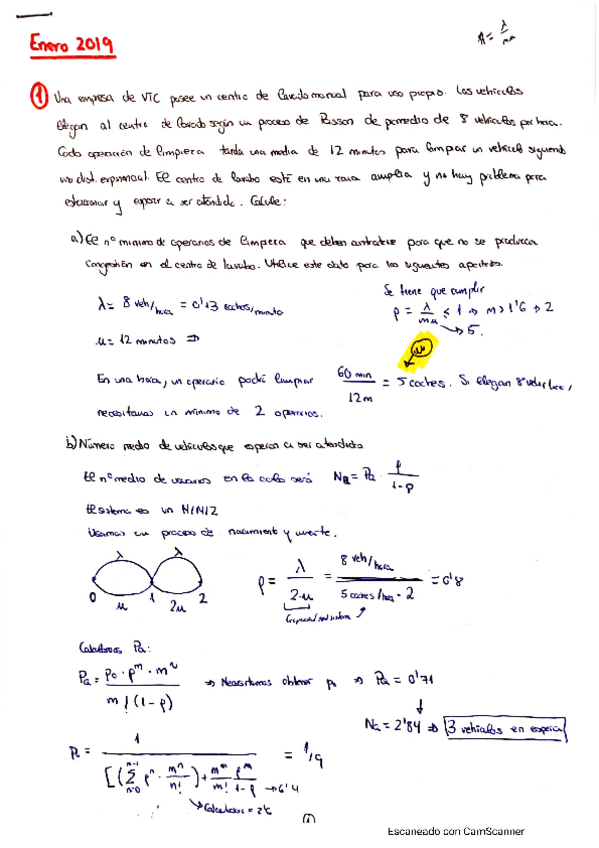 A = λ/mμ
Enero 2019
① Una empresa de VTC posee un centro de lavado manual para uso propio. Los vehículos
llegan al centro de lavado según un proceso de Poisson de promedio de 8 vehículos por hora.
Cada operación de limpieza tarda una media de 12 minutos para limpiar un vehículo siguiendo
una dist. exponencial. El centro de lavado está en una zona amplia y no hay problema para
estacionar y esperar a ser atendido. Calcule:
a) El nº mínimo de operarios de limpieza que deben contratar para que no se produzca
congestión en el centro de lavado. Utilice este dato para los siguientes apartados.
Se tiene que cumplir
λ = 8 veh/hora = 0'13 coches/minuto
ρ = λ/mμ < 1 ⇒ m > 1'6 ⇒ 2
→ 5.
μ = 12 minutos ⇒
En una hora, un operario podrá limpiar 60 min/12m = 5 coches. Si llegan 8 veh/hora,
necesitamos un mínimo de 2 operarios.
b) Número medio de vehículos que esperan a ser atendidos
El nº medio de usuarios en la cola será NQ = PQ · ρ/1-ρ
El sistema es un M/M/2
Usamos un proceso de nacimiento y muerte.
λ λ
0 μ 1 2μ 2
ρ = λ/2·μ = 8 veh/hora / 5 coches/hora · 2 = 0'8
Capacidad del sistema
Calculamos PQ:
PQ = p0 · ρ^m · m^m / m! (1-ρ) ⇒ Necesitamos obtener p0 ⇒ PQ = 0'71
NQ = 2'84 ⇒ 3 vehículos en espera
P0 = 1 / [(Σ n=0 m-1 ρ^n · m^n/n!) + m^m/m! ρ^m/1-ρ → 6'4 = 1/9
1
Escaneado con CamScanner